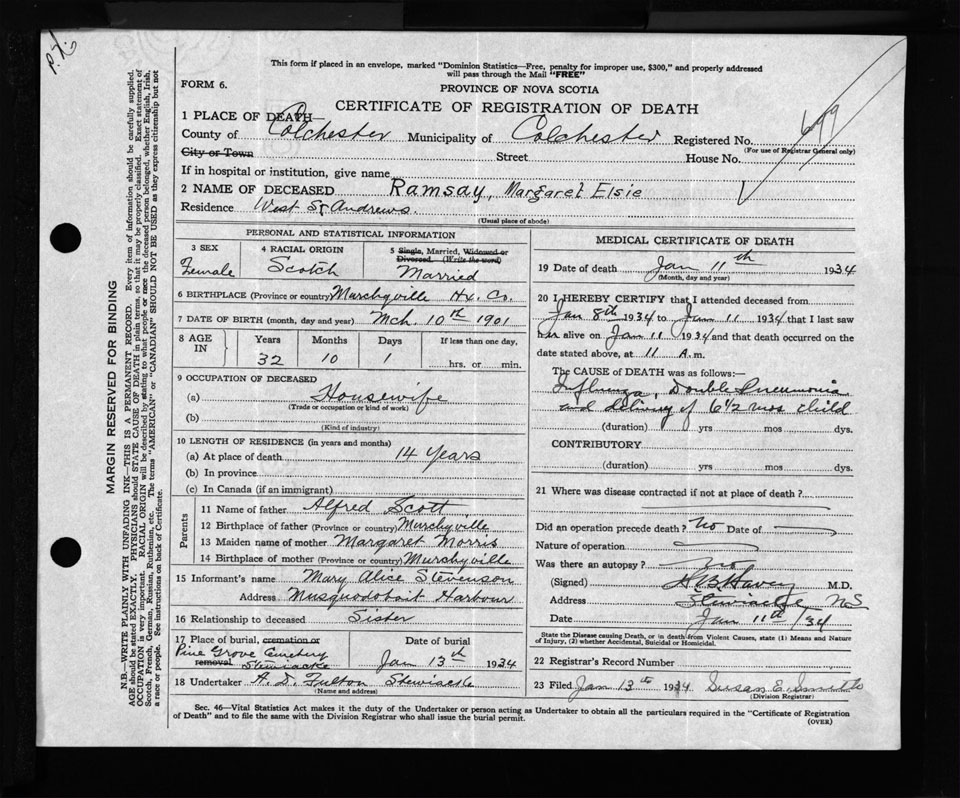 P.X.
This form if placed in an envelope, marked "Dominion Statistics—Free, penalty for improper use, $300," and properly addressed
will pass through the Mail "FREE"
FORM 6.
PROVINCE OF NOVA SCOTIA
CERTIFICATE OF REGISTRATION OF DEATH
1 PLACE OF DEATH—
County of Colchester Municipality of Colchester Registered No. 649
(For use of Registrar General only)
City or Town Street House No.
If in hospital or institution, give name
2 NAME OF DECEASED Ramsay, Margaret Elsie
Residence West St Andrews.
(Usual place of abode)
PERSONAL AND STATISTICAL INFORMATION
3 SEX 4 RACIAL ORIGIN 5 Single, Married, Widowed or
Divorced. (Write the word)
Female Scotch Married
6 BIRTHPLACE (Province or country) Murchyville Hx. Co.
7 DATE OF BIRTH (month, day and year) Mch. 10th 1901
8 AGE IN Years Months Days If less than one day,
32 10 1 hrs. or min.
9 OCCUPATION OF DECEASED
(a) Housewife
(Trade or occupation or kind of work)
(b)
(Kind of industry)
10 LENGTH OF RESIDENCE (in years and months)
(a) At place of death 14 Years
(b) In province
(c) In Canada (if an immigrant)
Parents
11 Name of father Alfred Scott
12 Birthplace of father (Province or country) Murchyville
13 Maiden name of mother Margaret Morris
14 Birthplace of mother (Province or country) Murchyville
15 Informant's name Mary Alice Stevenson
Address Musquodoboit Harbour
16 Relationship to deceased Sister
17 Place of burial, cremation or Date of burial
Pine Grove Cemetery
removal Stewiacke Jan 13th 1934
18 Undertaker A. D. Fulton Stewiacke
(Name and address)
MEDICAL CERTIFICATE OF DEATH
19 Date of death Jan 11th 1934
(Month, day and year)
20 I HEREBY CERTIFY that I attended deceased from
Jan 8th 1934 to Jan 11 1934 that I last saw
her alive on Jan 11 1934 and that death occurred on the
date stated above, at 11 A.m.
The CAUSE of DEATH was as follows:—
Influenza, Double Pneumonia
and delivery of 6 1/2 mos. child
(duration) yrs mos dys.
CONTRIBUTORY
(duration) yrs mos dys.
21 Where was disease contracted if not at place of death?
Did an operation precede death? No Date of
Nature of operation
Was there an autopsy? No
(Signed) M.D.
Address Stewiacke NS
Date Jan 11th /34
State the Disease causing Death, or in death from Violent Causes, state (1) Means and Nature
of Injury, (2) whether Accidental, Suicidal or Homicidal.
22 Registrar's Record Number
23 Filed Jan 13th 1934 Susan E. Smith
(Division Registrar)
Sec. 46—Vital Statistics Act makes it the duty of the Undertaker or person acting as Undertaker to obtain all the particulars required in the "Certificate of Registration
of Death" and to file the same with the Division Registrar who shall issue the burial permit.
(OVER)
MARGIN RESERVED FOR BINDING
N.B.—WRITE PLAINLY WITH UNFADING INK—THIS IS A PERMANENT RECORD. Every item of information should be carefully supplied.
AGE should be stated EXACTLY. PHYSICIANS should STATE CAUSE OF DEATH in plain terms, so that it may be properly classified. Exact statement of
OCCUPATION is very important. RACIAL ORIGIN will be described by stating to what people or race the deceased person belonged, whether English, Irish,
Scotch, French, German, Russian, Ruthenian, etc. The terms "AMERICAN" or "CANADIAN" SHOULD NOT BE USED as they express citizenship but not
a race or people. See instructions on back of Certificate.